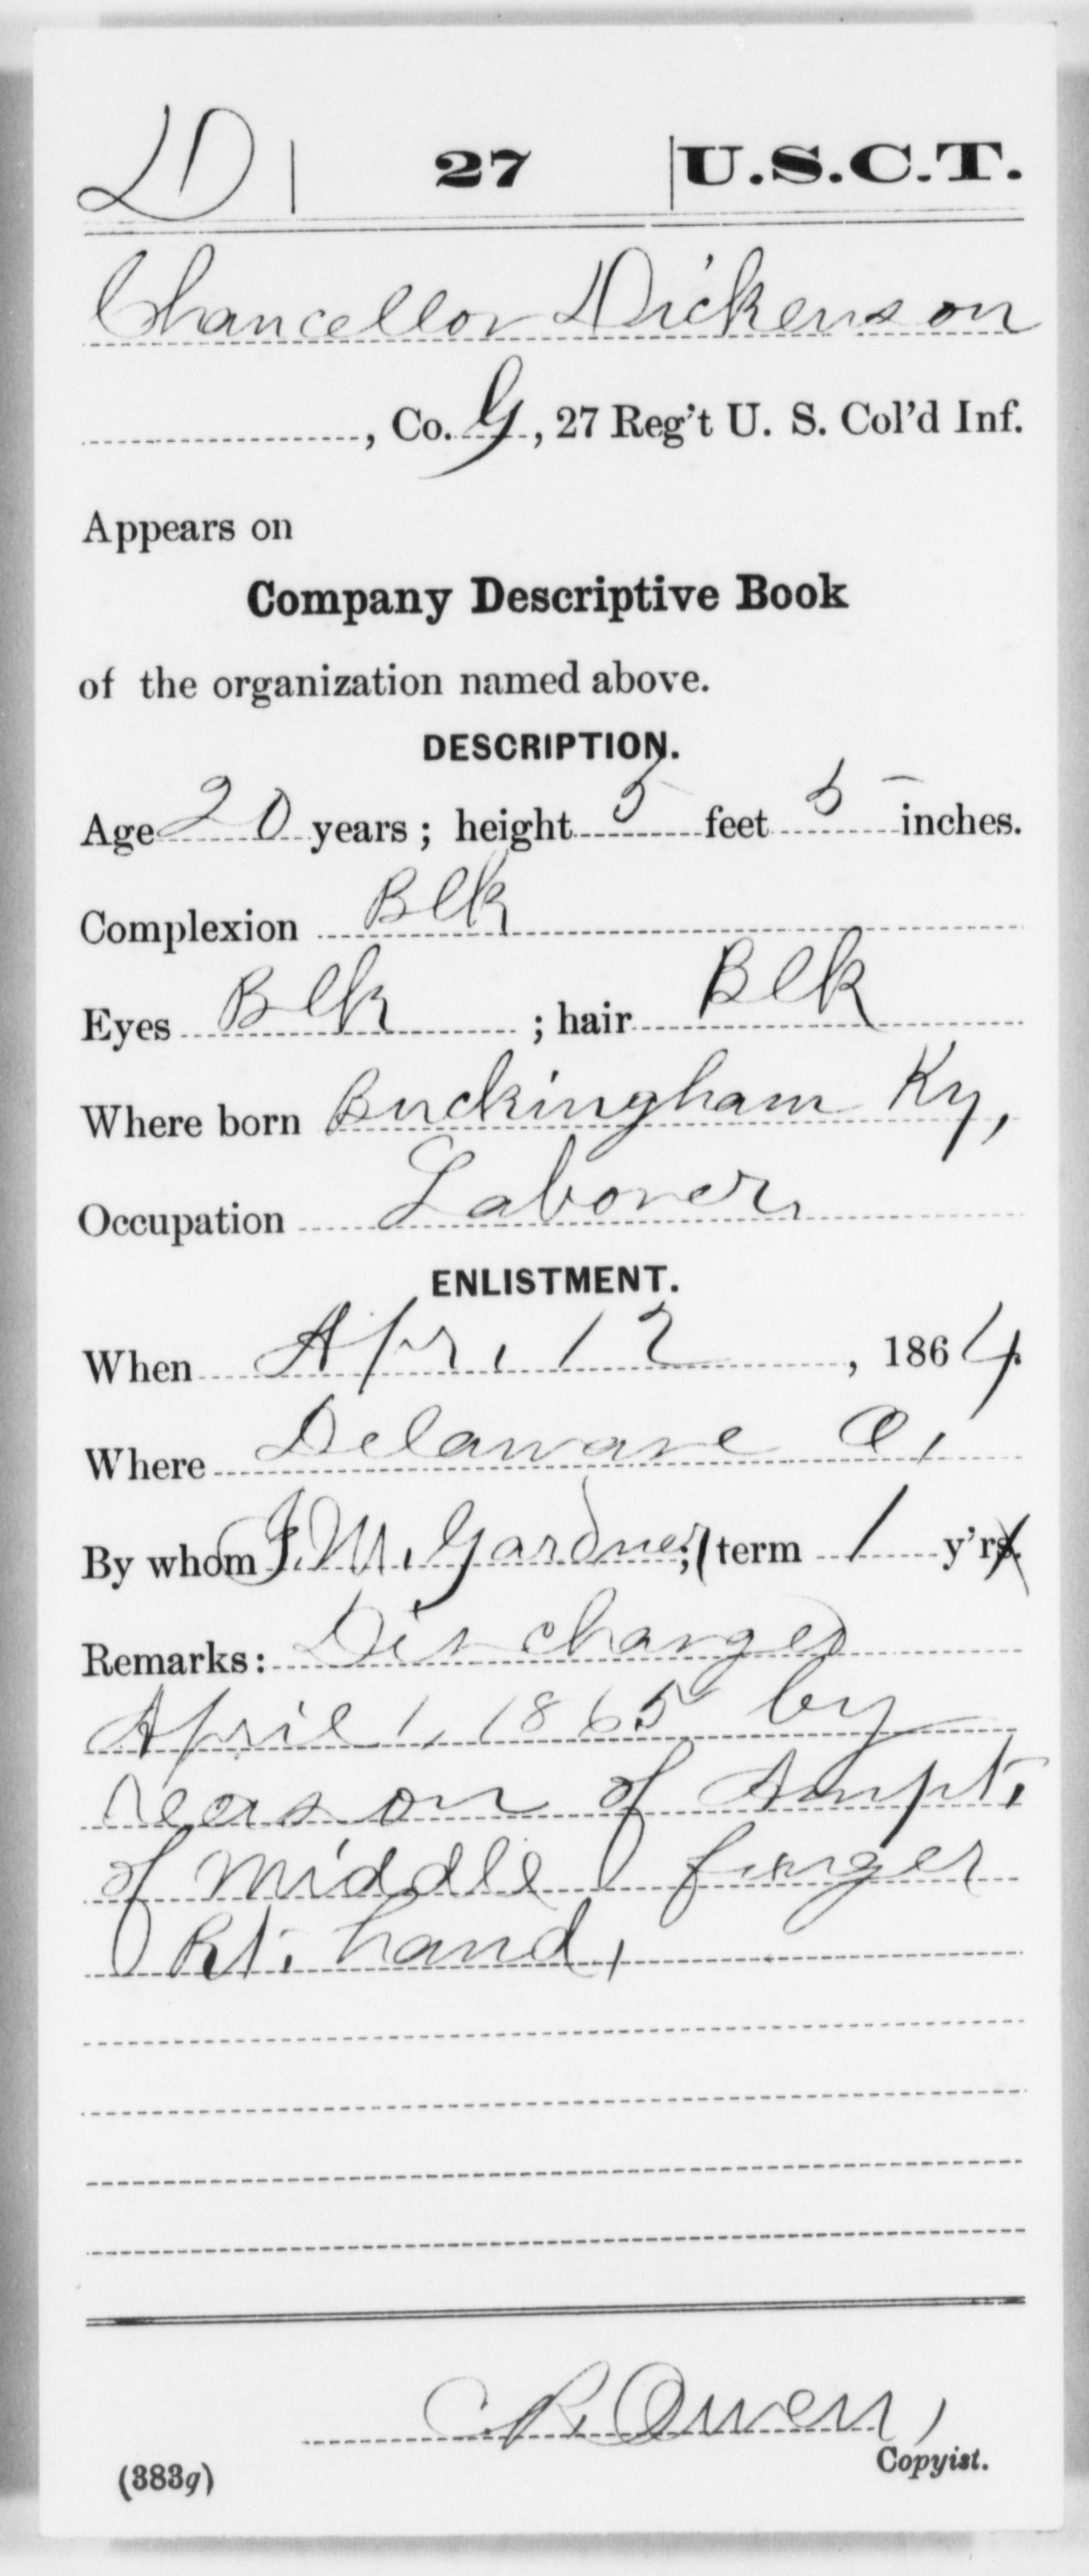 D | 27 | U.S.C.T.
Chancellor Dickenson
, Co. G, 27 Reg't U. S. Col'd Inf.
Appears on
Company Descriptive Book
of the organization named above.
DESCRIPTION.
Age 20 years; height 5 feet 5 inches.
Complexion Blk
Eyes Blk ; hair Blk
Where born Buckingham Ky,
Occupation Laborer,
ENLISTMENT.
When Apr. 12, 1864
Where Delaware O.
By whom J. M. Gardner; term 1 y'rs.
Remarks: Discharged
April 1, 1865 by
reason of Ampt.
of middle finger
Rt. hand,
C R. Owen,
Copyist.
(383g)